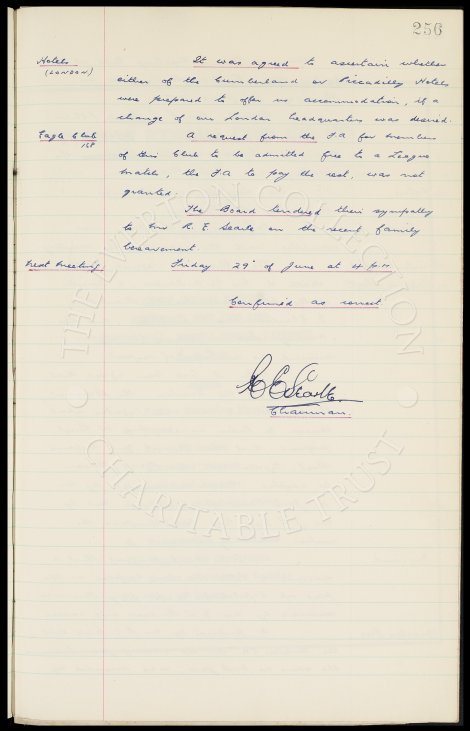 256
Hotels
(LONDON)
It was agreed to ascertain whether
either of the Cumberland or Piccadilly Hotels
were prepared to offer us accommodation, if a
change of our London headquarters was desired.
Eagle Club
A request from the FA for members
of this Club to be admitted free to a League
match, the FA to pay the rest, was not
granted.
The Board tendered their sympathy
to Mr R. E Searle on the recent family
bereavement.
Next Meeting
Friday 29th of June at 4 p.m.
Confirmed as correct
Chairman.
THE EVERTON COLLECTION
CHARITABLE TRUST